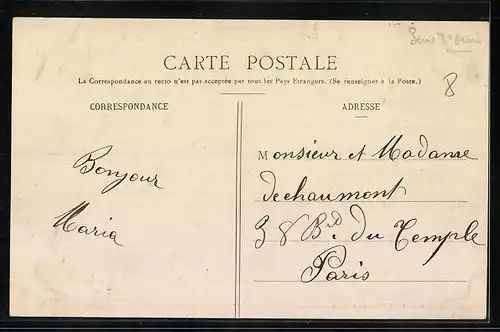 CARTE POSTALE
La Correspondance au recto n'est pas acceptée par tous les Pays Etrangers. (Se renseigner à la Poste.)
CORRESPONDANCE
ADRESSE
8
Bonjour
Maria
Monsieur et Madame
dechaumont
38 Bd. du Temple
Paris